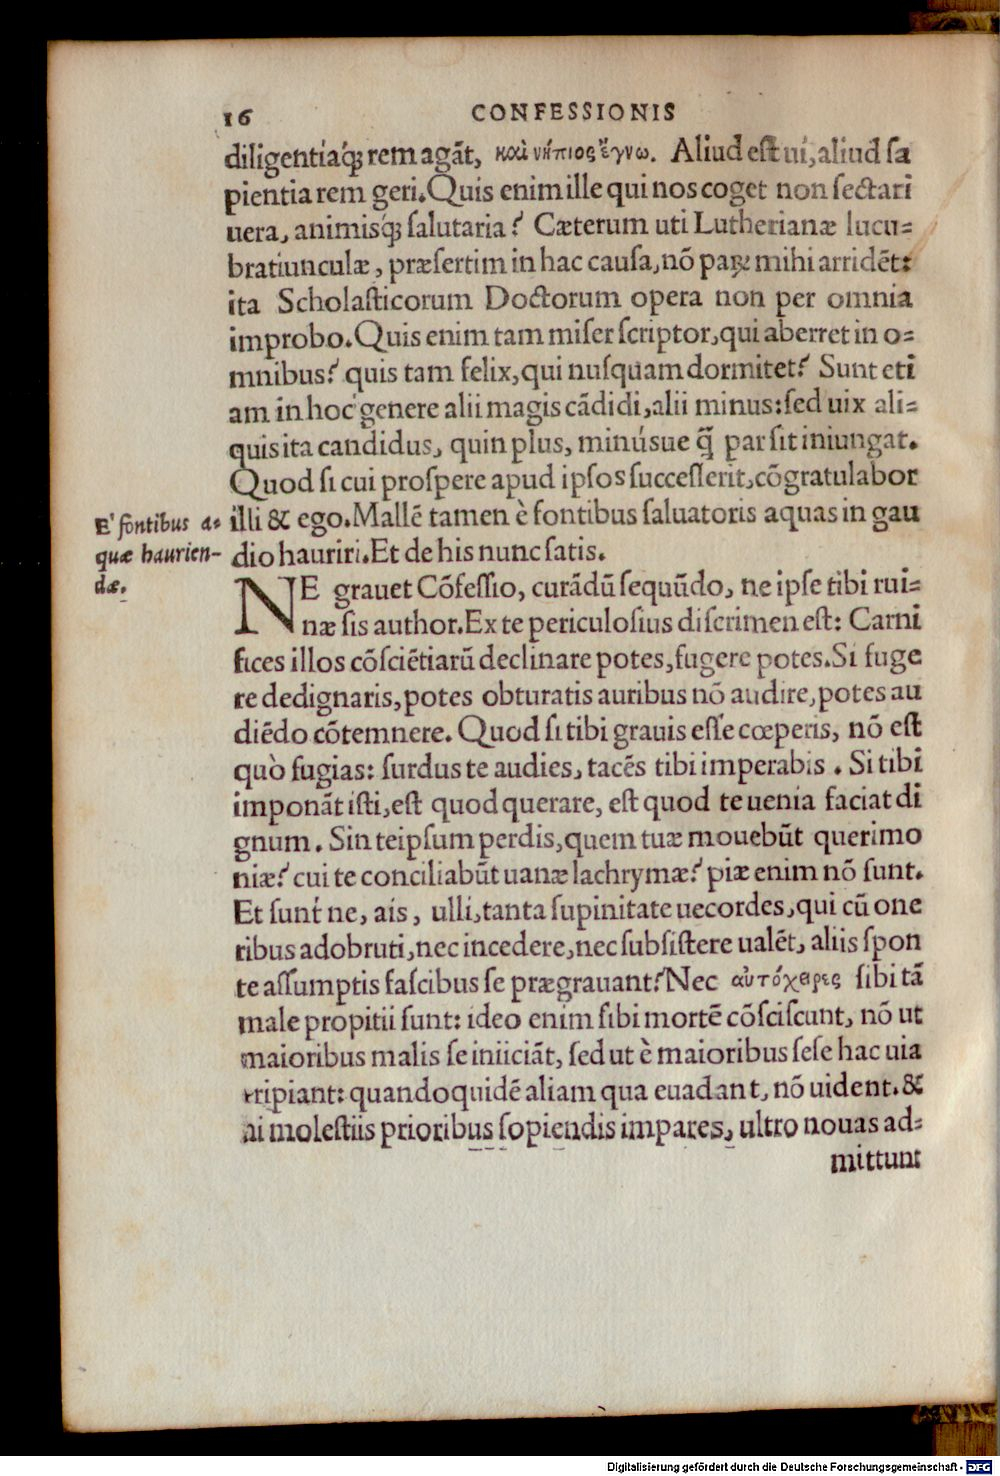 16 CONFESSIONIS
diligentiaq́ꝫ rem agãt, καὶ νήπιος ἔγνω. Aliud est ui, aliud sa
pientia rem geri. Quis enim ille qui nos coget non sectari
uera, animisq́ꝫ salutaria? Cæterum uti Lutherianæ lucu-
bratiunculæ, præsertim in hac causa, nõ parꝫ mihi arridẽt:
ita Scholasticorum Doctorum opera non per omnia
improbo. Quis enim tam miser scriptor, qui aberret in o-
mnibus? quis tam felix, qui nusquam dormitet? Sunt eti
am in hoc genere alii magis cãdidi, alii minus: sed uix ali-
quis ita candidus, quin plus, minúsue q̃ par sit iniungat.
Quod si cui prospere apud ipsos successerit, cõgratulabor
illi & ego. Mallẽ tamen è fontibus saluatoris aquas in gau
dio hauriri. Et de his nunc satis.
E' fontibus a-
quæ haurien-
dæ.
NE grauet Cõfessio, curãdũ sequũdo, ne ipse tibi rui-
næ sis author. Ex te periculosius discrimen est: Carni
fices illos cõsciẽtiarũ declinare potes, fugere potes. Si fuge
re dedignaris, potes obturatis auribus nõ audire, potes au
diẽdo cõtemnere. Quod si tibi grauis esse cœperis, nõ est
quò fugias: surdus te audies, tacẽs tibi imperabis. Si tibi
imponãt isti, est quod querare, est quod te uenia faciat di
gnum. Sin teipsum perdis, quem tuæ mouebũt querimo
niæ? cui te conciliabũt uanæ lachrymæ? piæ enim nõ sunt.
Et sunt ne, ais, ulli, tanta supinitate uecordes, qui cũ one
ribus adobruti, nec incedere, nec subsistere ualẽt, aliis spon
te assumptis fascibus se prægrauant? Nec αὐτόχειρες sibi tã
male propitii sunt: ideo enim sibi mortẽ cõsciscunt, nõ ut
maioribus malis se iniiciãt, sed ut è maioribus sese hac uia
eripiant: quandoquidẽ aliam qua euadant, nõ uident. &
ni molestiis prioribus sopiendis impares, ultro nouas ad-
mittunt
Digitalisierung gefördert durch die Deutsche Forschungsgemeinschaft - DFG